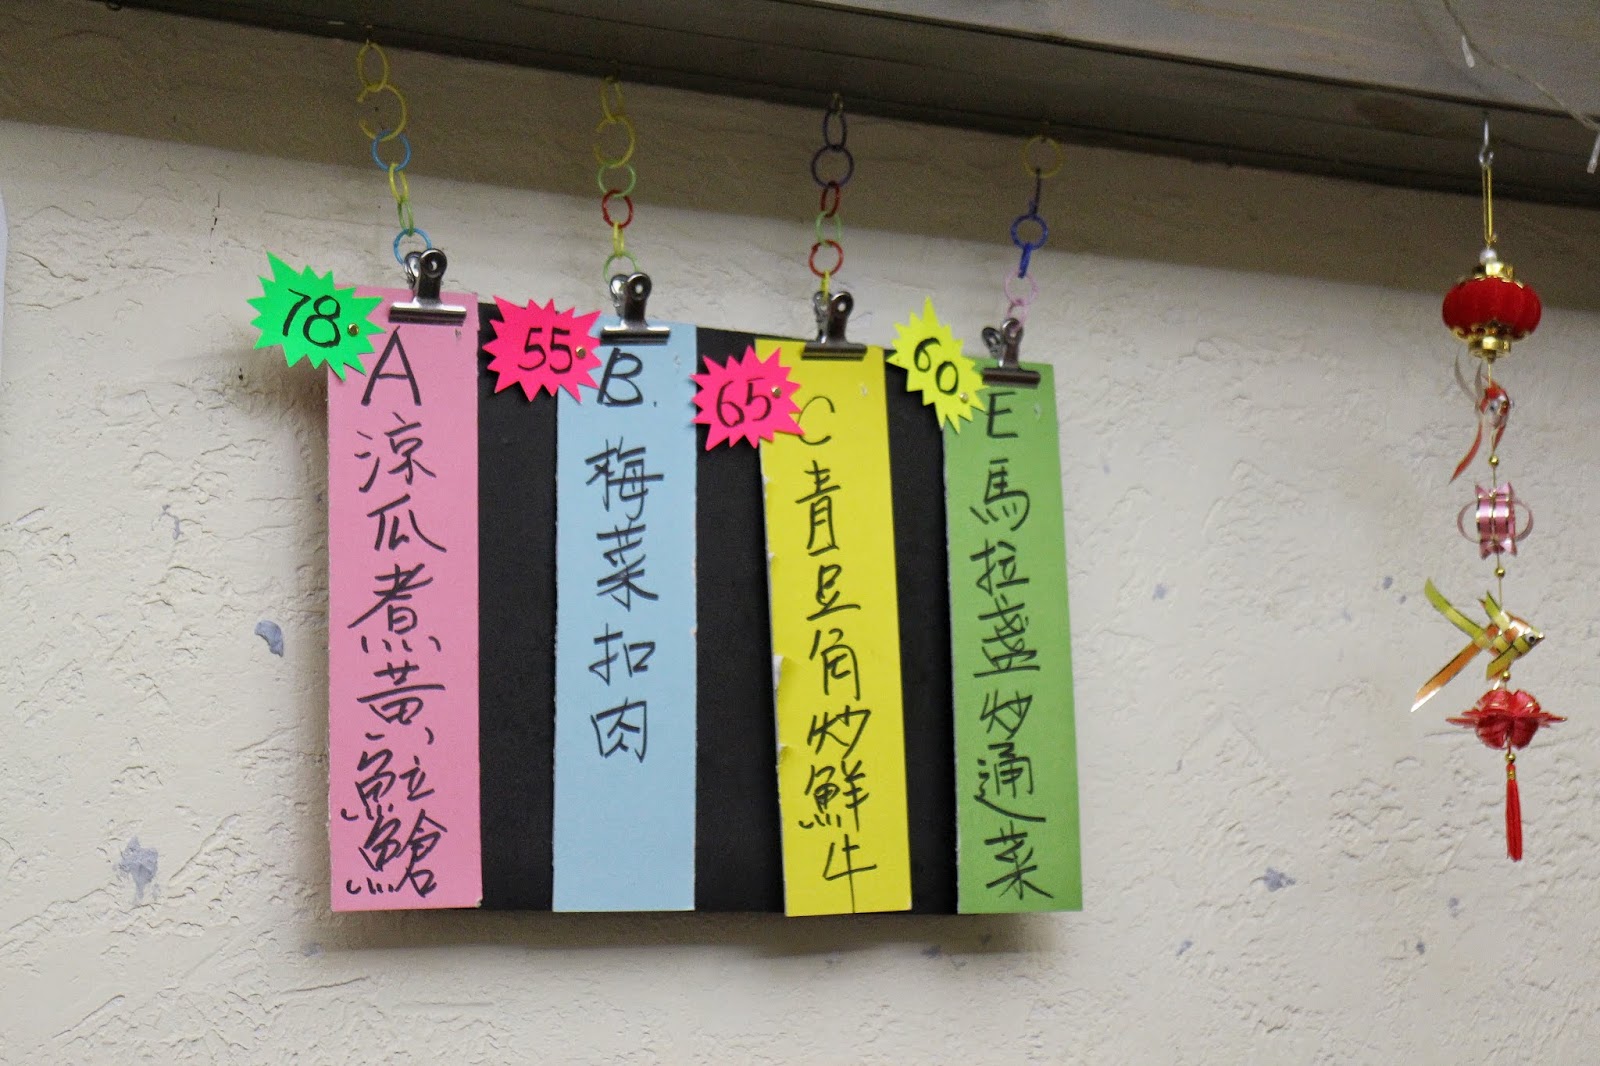 78
A 涼瓜煮黃鮏鱠
55
B. 梅菜扣肉
65
C 青豆角炒鮮牛
60
E 馬拉盞炒通菜